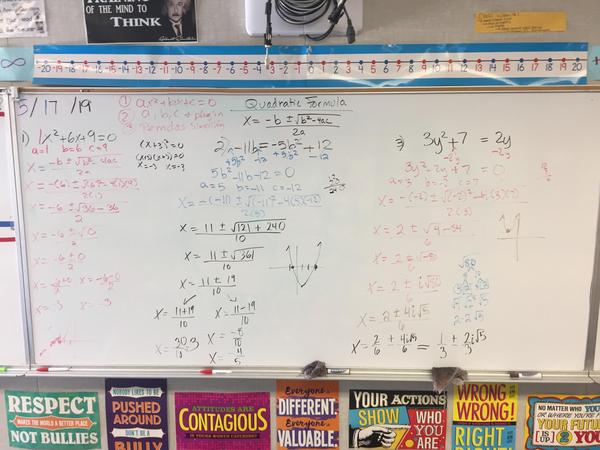 TRAINING
OF THE MIND TO
THINK
-20 -19 -18 -17 -16 -15 -14 -13 -12 -11 -10 -9 -8 -7 -6 -5 -4 -3 -2 -1 0 1 2 3 4 5 6 7 8 9 10 11 12 13 14 15 16 17 18 19 20
5/17/19
① ax²+bx+c=0
② a, b, c → plug in
Quadratic Formula
x = -b ± √b²-4ac / 2a
1) 1x²+6x+9=0
a=1 b=6 c=9
x = -b ± √b²-4ac / 2a
x = -(6) ± √(6)²-4(1)(9) / 2(1)
x = -6 ± √36-36 / 2
x = -6 ± √0 / 2
x = -6 ± 0 / 2
(x+3)²=0
(x+3)(x+3)=0
x=-3 x=-3
2) -11b = -5b² + 12
+5b² -12 +5b² -12
5b² - 11b - 12 = 0
a=5 b=-11 c=-12
x = -(-11) ± √(-11)²-4(5)(-12) / 2(5)
x = 11 ± √121 + 240 / 10
x = 11 ± √361 / 10
x = 11 ± 19 / 10
x = 11+19 / 10 x = 11-19 / 10
x = 30 / 10 3
x = -8 / 10
x = -4 / 5
3) 3y²+7 = 2y
-2y -2y
3y²-2y+7=0
a=3 b=-2 c=7
x = -(-2) ± √(-2)²-4(3)(7) / 2(3)
x = 2 ± √4-84 / 6
x = 2 ± √-80 / 6
x = 2 ± i√80 / 6
√80
x = 2 ± 4i√5 / 6
x = 2/6 ± 4i√5/6 = 1/3 ± 2i√5/3
RESPECT
MAKES THE WORLD A BETTER PLACE
NOT BULLIES
NOBODY LIKES TO BE
PUSHED
AROUND
DON'T BE A
BULLY
ATTITUDES ARE
CONTAGIOUS
IS YOURS WORTH CATCHING?
Everyone is
DIFFERENT.
Everyone is
VALUABLE.
YOUR ACTIONS
SHOW
WHO
YOU
ARE
WRONG IS
WRONG!
RIGHT
NO MATTER WHO YOU
YOUR FUTURE
[IS] UP 2 YOU